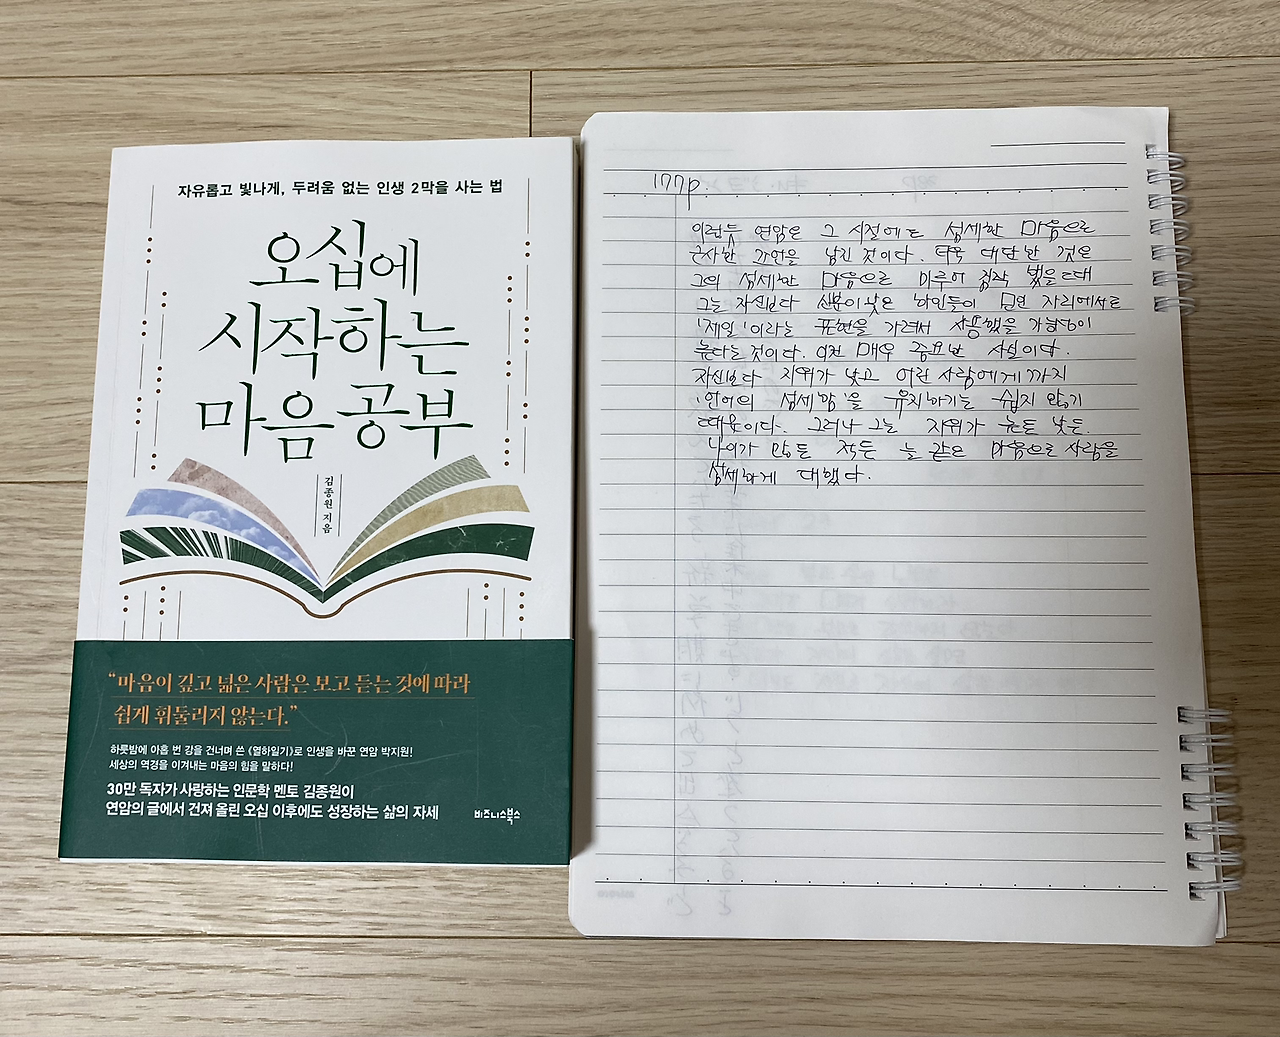 자유롭고 빛나게, 두려움 없는 인생 2막을 사는 법
오십에
시작하는
마음 공부
김종원 지음
“마음이 깊고 넓은 사람은 보고 듣는 것에 따라
쉽게 휘둘리지 않는다.”
하룻밤에 아홉 번 강을 건너며 쓴 《열하일기》로 인생을 바꾼 연암 박지원!
세상의 역경을 이겨내는 마음의 힘을 말하다!
30만 독자가 사랑하는 인문학 멘토 김종원이
연암의 글에서 건져 올린 오십 이후에도 성장하는 삶의 자세
비즈니스북스
177p.
이런듯 연암은 그 시절에도 섬세한 마음으로
근사한 조언을 남긴 것이다. 더욱 대단한 것은
그의 섬세한 마음으로 미루어 짐작 했을 때
그는 자신보다 신분이 낮은 하인들이 모인 자리에서도
'제일'이라는 표현을 가려서 사용했을 가능성이
높다는 것이다. 이건 매우 중요한 사실이다.
자신보다 지위가 낮고 어린 사람에게까지
'언어의 섬세함'을 유지하기는 쉽지 않기
때문이다. 그러나 그는 지위가 높든 낮든.
나이가 많든 적든 늘 같은 마음으로 사람을
섬세하게 대했다.